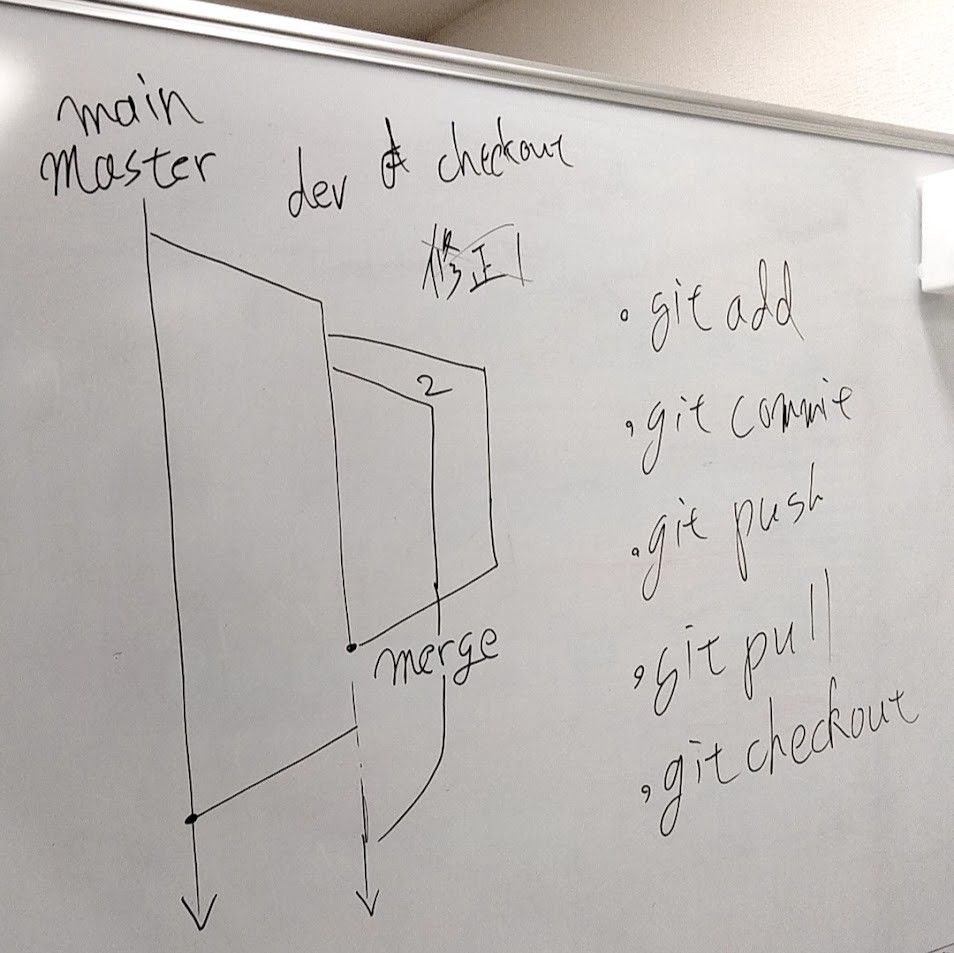 main
master
dev checkout
修正1
2
merge
・git add
・git commit
・git push
・git pull
・git checkout